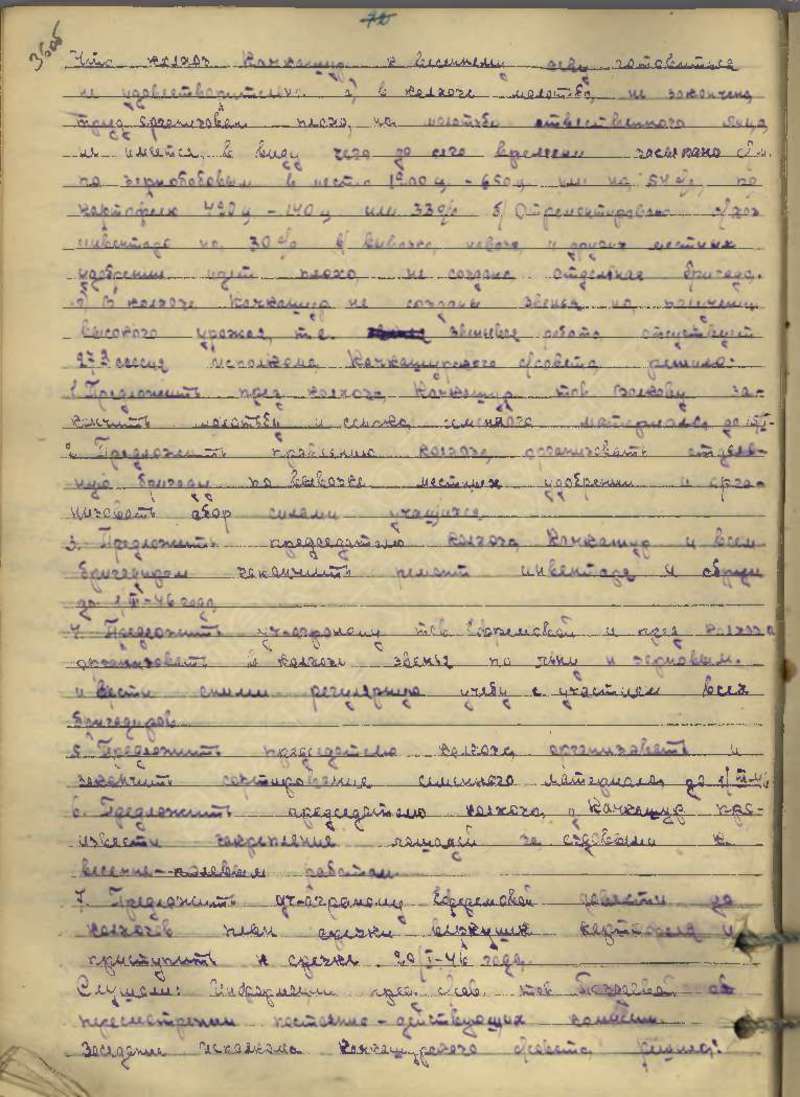 72
Что колхоз Качкашур к весеннему севу готовиться
не удовестварительно: а) в колхозе молотьба, не закончена,
труд организован плохо, на молотьбе ответственного лица
не имеется, в виду чего до сего времени засыпано с/м.
по зернобобовым в место 1200 ц - 650 ц или на 54%, по
картофелю 420 ц - 140 ц или 33% б) Отремонтировано с/хоз
инвентаря на 30% в) вывозка, навоза, и других местных
удобрении идет плохо, не создана отдельная бригада.
г) В колхозе Качкашур не созданы звенья на получении
высокого урожая, т.е. звеньевая работа отсутствует
27я сессия исполкома Качкашурского с/совета решила:
1. Предложить пред. колхоза Качкашур тов Волкову за-
кончить молотьбу и ссыпка, семенного материала, до
2. Предложить правлению колхоза, организовать отдель-
ную бригаду по вывозке местных удобрении и орга-
низовать сбор силами учащихся
3. Предложить председателю колхоза, Качкашур и всем
бригадирам закончить ремонт инвентаря и сбруи
до 1/II-46 года,
4. Предложить уч-агроному тов Ефремовой и пред колхоза
организовать в колхозе звенья по льну и зерновым.
и вести с ними регулярную учебу с участием всех
бригадиров.
5. Предложить председателю колхоза, организовать и
закончить сортирование семенного материала, до
6. Предложить председателю колхоза, Качкашур про-
извести закрепление лошадей за ездовыми к
весенне-полевым работам.
7. Предложить уч-аграному Ефремовой довести до
колхозов план срезки верхушек картофеля и
приступить к срезке 20/I-46 года,
Слушали: Информации пред. с/сов. тов об
пересмотрении постоянно-действующих комиссии.
Заседание Исполкома Качкашурского с/совета, решила: